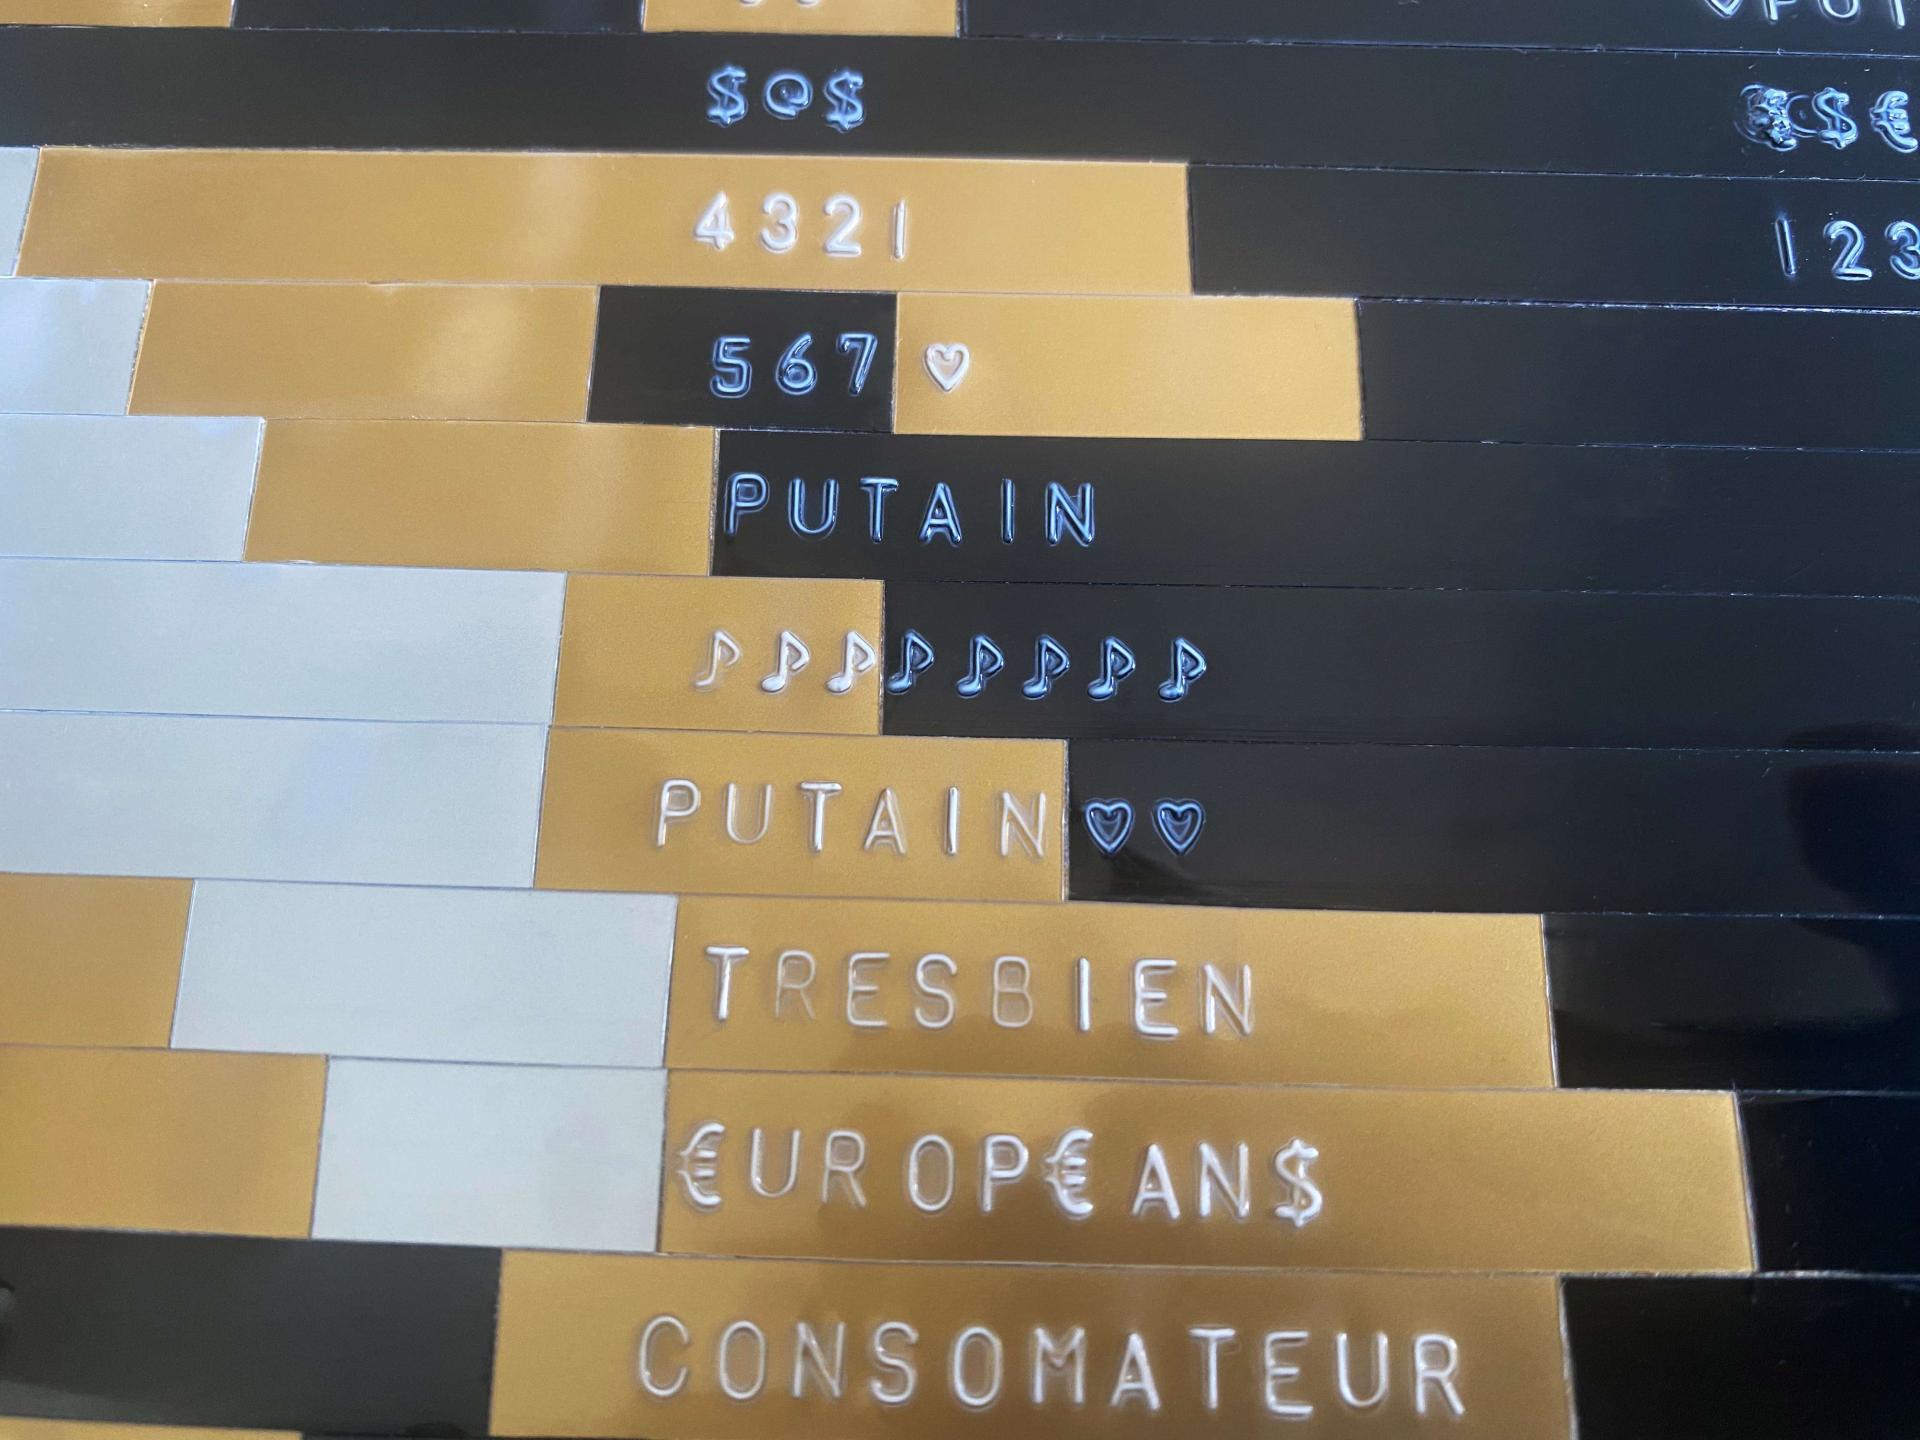 ♡PUT
$@$ $€
4321 123
567♡
PUTAIN
♪♪♪♪♪♪♪♪
PUTAIN♡♡
TRESBIEN
€UROP€AN$
CONSOMATEUR